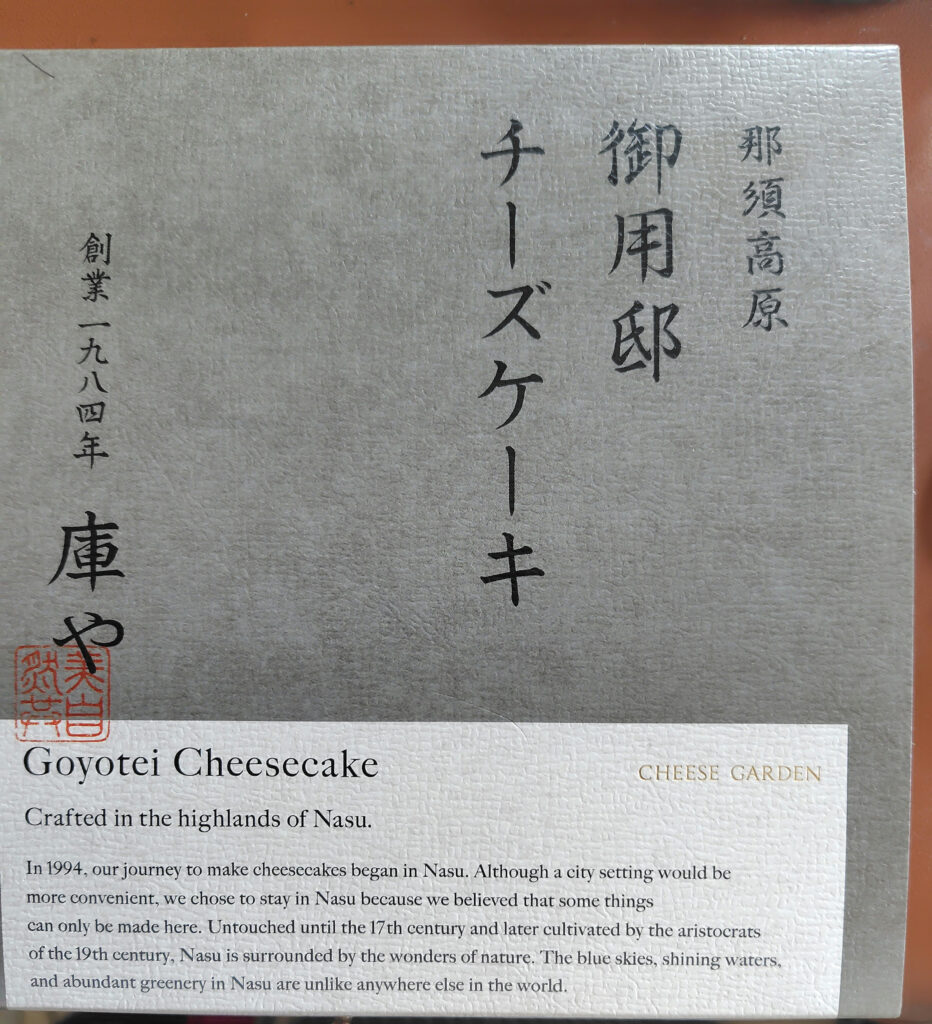 那須高原
御用邸
チーズケーキ
創業一九八四年
庫や
Goyotei Cheesecake
CHEESE GARDEN
Crafted in the highlands of Nasu.
In 1994, our journey to make cheesecakes began in Nasu. Although a city setting would be
more convenient, we chose to stay in Nasu because we believed that some things
can only be made here. Untouched until the 17th century and later cultivated by the aristocrats
of the 19th century, Nasu is surrounded by the wonders of nature. The blue skies, shining waters,
and abundant greenery in Nasu are unlike anywhere else in the world.